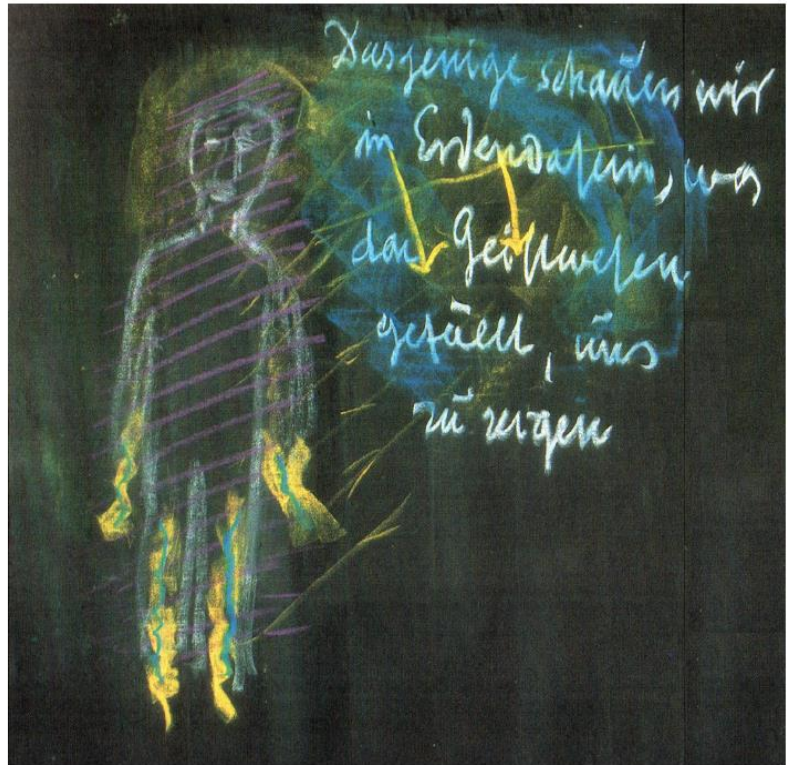 Dasjenige schauen wir
in Erdendasein, was
Geistwesen
gefällt, uns
zu zeigen